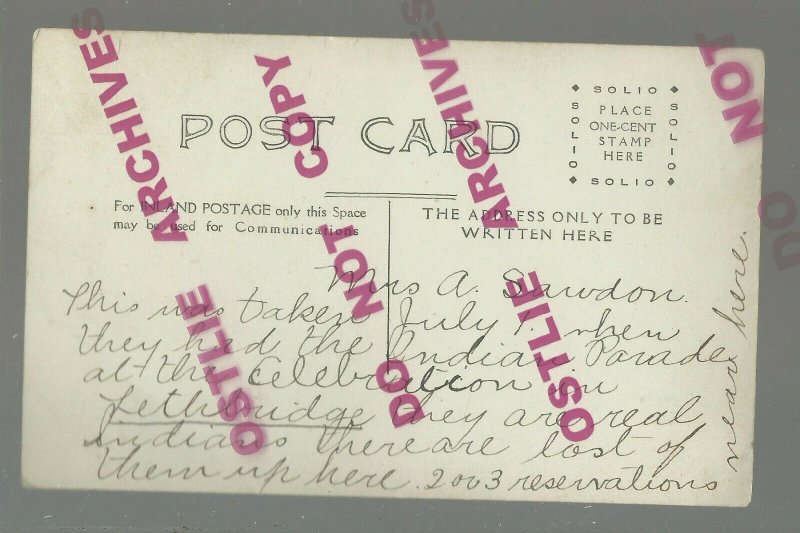 POST CARD
SOLIO
SOLIO
PLACE
ONE-CENT
STAMP
HERE
SOLIO
SOLIO
For INLAND POSTAGE only this Space
may be used for Communications
THE ADDRESS ONLY TO BE
WRITTEN HERE
Mrs A. Sawdon.
This was taken July 1 when
they had the Indian Parade
at the Celebration in
Lethbridge they are real
Indians there are lost of
them up here. 2 or 3 reservations
near here.
OSTLIE ARCHIVES
DO NOT COPY
OSTLIE ARCHIVES
DO NOT